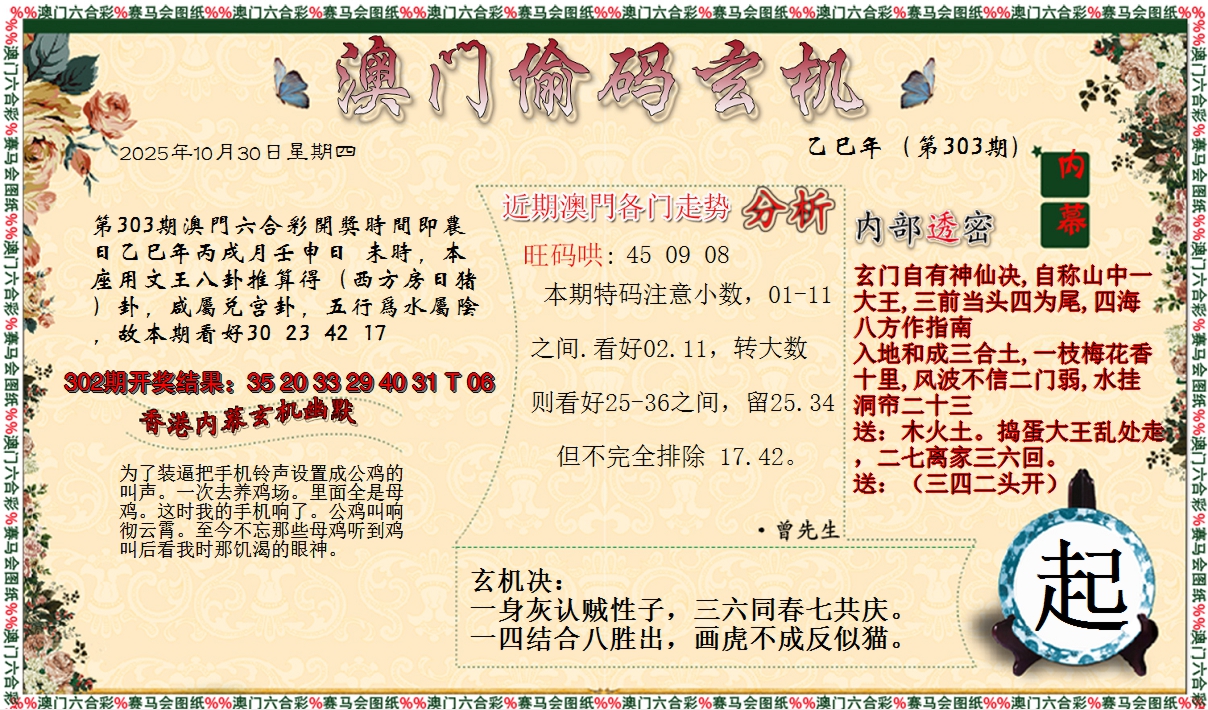 %%澳门六合彩%赛马会图纸%%澳门六合彩%赛马会图纸%%澳门六合彩%赛马会图纸%%澳门六合彩%赛马会图纸%%澳门六合彩%赛马会图纸%%澳门六合彩%赛马会图纸%%
澳门偷码玄机
2025年10月30日星期四
乙巳年（第303期）
内幕
第303期澳門六合彩開獎時間即農
日乙巳年丙戌月壬申日 未時，本
座用文王八卦推算得（西方房日猪
）卦，咸屬兑宫卦，五行爲水屬陰
，故本期看好30 23 42 17
302期开奖结果：35 20 33 29 40 31 T 06
香港内幕玄机幽默
为了装逼把手机铃声设置成公鸡的
叫声。一次去养鸡场。里面全是母
鸡。这时我的手机响了。公鸡叫响
彻云霄。至今不忘那些母鸡听到鸡
叫后看我时那饥渴的眼神。
近期澳門各门走势 分析
旺码哄: 45 09 08
本期特码注意小数，01-11
之间.看好02.11，转大数
则看好25-36之间，留25.34
但不完全排除 17.42。
·曾先生
内部透密
玄门自有神仙决,自称山中一
大王,三前当头四为尾,四海
八方作指南
入地和成三合土,一枝梅花香
十里,风波不信二门弱,水挂
洞帘二十三
送：木火土。捣蛋大王乱处走
，二七离家三六回。
送：（三四二头开）
玄机决：
一身灰认贼性子，三六同春七共庆。
一四结合八胜出，画虎不成反似猫。
起
%%澳门六合彩%赛马会图纸%%澳门六合彩%赛马会图纸%%澳门六合彩%赛马会图纸%%澳门六合彩%赛马会图纸%%澳门六合彩%赛马会图纸%%澳门六合彩%赛马会图纸%%